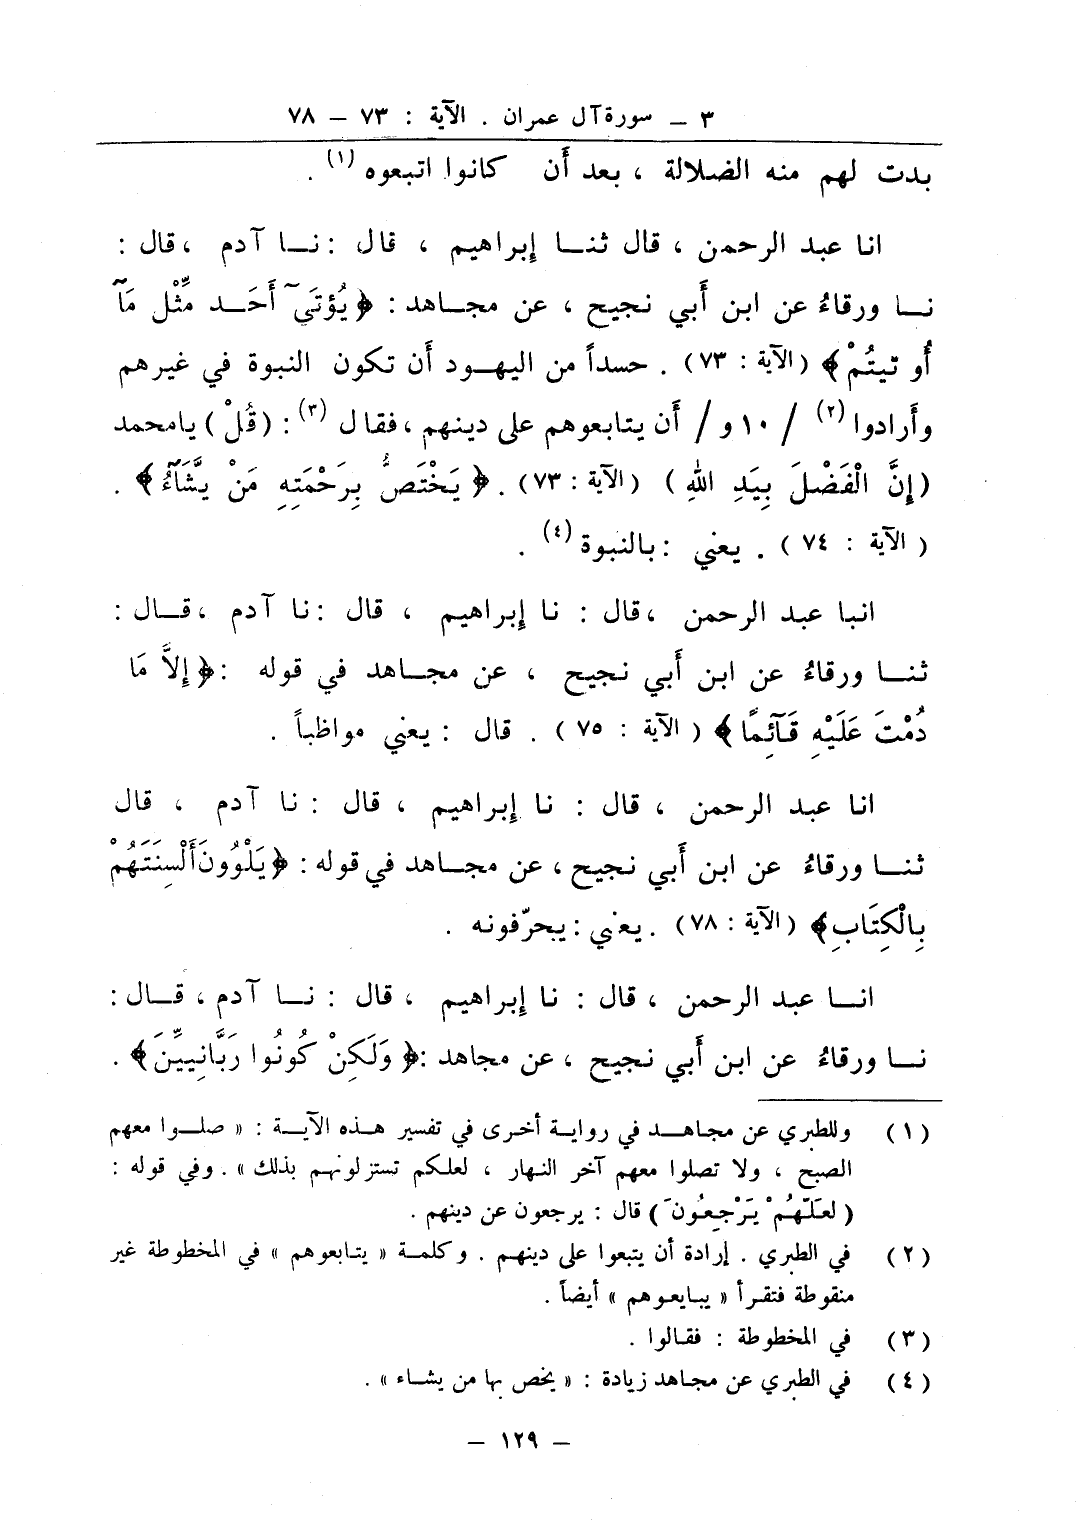 ٣ ـ سورة آل عمران . الآية : ٧٣ – ٧٨
بدت لهم منه الضلالة ، بعد أَن كانوا اتبعوه (١) .
انا عبد الرحمن ، قال ثنـا إبراهيم ، قال : نـا آدم ، قال :
نـا ورقاءُ عن ابن أَبي نجيح ، عن مجـاهد : ﴿ يُؤتَىٓ أَحَـد مِّثْل مَآ
أُو تيتُمْ ﴾ (الآية : ٧٣) . حسداً من اليهـود أَن تكون النبوة في غيرهم
وأَرادوا (٢) / ١٠ و / أَن يتابعوهم على دينهم ، فقال (٣) : ( قُلْ ) يامحمد
( إِنَّ الْفَضْلَ بِيَدِ اللهِ ) ( الآية : ٧٣ ) . ﴿ يَخْتَصُّ بِرَحْمَتِهِ مَنْ يَّشَآءُ ﴾ .
( الآية : ٧٤ ) . يعني : بالنبوة (٤) .
انبا عبد الرحمن ، قال : نا إِبراهيم ، قال : نا آدم ، قـال :
ثنـا ورقاءُ عن ابن أَبي نجيح ، عن مجـاهد في قوله : ﴿ إِلاَّ مَا
دُمْتَ عَلَيْهِ قَآئِمًا ﴾ ( الآية : ٧٥ ) . قال : يعني مواظباً .
انا عبد الرحمن ، قال : نا إِبراهيم ، قال : نا آدم ، قال
ثنـا ورقاءُ عن ابن أَبي نجيح ، عن مجـاهد في قوله : ﴿ يَلْوُونَ أَلْسِنَتَهُمْ
بِالْكِتَابِ ﴾ ( الآية : ٧٨ ) . يعني : يحرّفونه .
انـا عبد الرحمن ، قال : نا إِبراهيم ، قال : نـا آدم ، قـال :
نـا ورقاءُ عن ابن أَبي نجيح ، عن مجاهد : ﴿ وَلَكِنْ كُونُوا رَبَّانِيِّينَ ﴾ .
(١) وللطبري عن مجاهـد في روايـة أخرى في تفسير هـذه الآيـة : « صلـوا معهم
الصبح ، ولا تصلوا معهم آخر النهار ، لعلكم تستزلونهم بذلك » . وفي قوله :
( لعَلّهُمْ يَرْجِعُونَ ) قال : يرجعون عن دينهم .
(٢) في الطبري . إرادة أن يتبعوا على دينهـم . وكلمـة « يتابعوهم » في المخطوطة غير
منقوطة فتقرأ « يبايعوهم » أيضاً .
(٣) في المخطوطة : فقالوا .
(٤) في الطبري عن مجاهد زيادة : « يخص بها من يشـاء » .
– ١٢٩ –